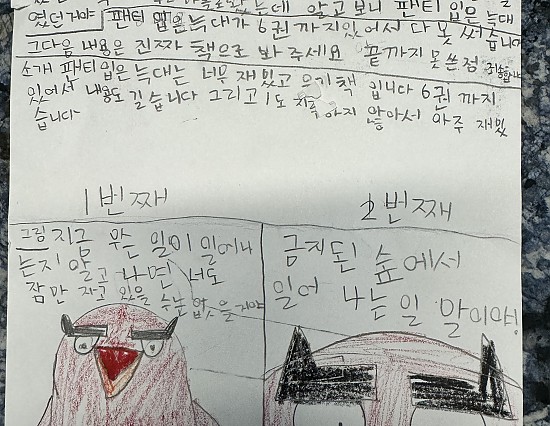 였던거야 팬티 입은 늑대가 6권까지 있어서 다 못 썼습니다
그다음 내용은 진짜 책으로 봐 주세요 끝까지 못쓴점
소개 팬티입은늑대는 너무 재밌고 웃기책 입니다 6권 까지
있어서 내용도 길습니다 그리고 1도 아지 않아서 아주 재밌
습니다
1번째
2번째
그림 지금 무슨 일이 일어나
는지 알고 나면 너도
잠만 자고 있을 수는 없을거야
금지된 숲에서
일어 나는일 말이야!